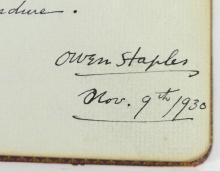 Owen Staples
Nov. 9th 1930